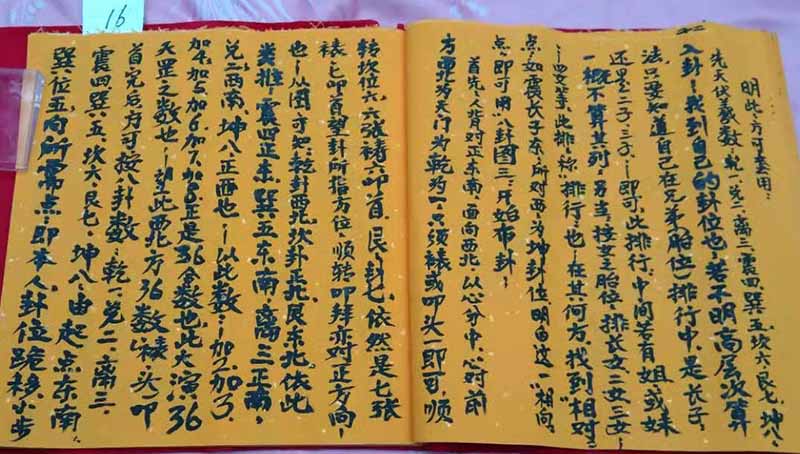 16
明此,方可套用:
先天伏羲数,乾一,兑二,离三,震四,巽五,坎六,艮七,坤八,
入卦!找到自己的卦位也,若不明高层次算
法,只要知道自己在兄弟胎位一排行中是长子,
还是二子,三子,一即可,此排行,中间若有姐或妹
一概不算其列,另 按女胎位,排长女二女三女,
一四女等,此排,称"排行"也一在其何方找到相对
点,如震长子东,所对西,为坤卦位,明白这一"相向"
点,即可用八卦图三,开始布卦:
首先,人背对正东南,面向西北,以心分中,心对前
方西北为天门为乾为一,只须裱或叩头一即可,顺
转坎位,六,六张裱六叩首,艮卦七,依然是七张
裱,七叩首望卦所指方位,顺转叩拜亦对正方向,
也!从图可知,乾卦西北,坎卦正北,艮东北,依此
类推,震四正东,巽五东南,离三正南,
兑二西南,坤八,正西也!以此数一加2,加3,
加4,加5加6加7,加8正是36合数也,此大演36
天罡之数也!望此西北方36数裱,头叩
首完后,方可按八卦数,乾一,兑二,离三,
震四巽五,坎六,艮七,坤八,由起点东南
巽位五向所需点,即本人卦位跪移小步